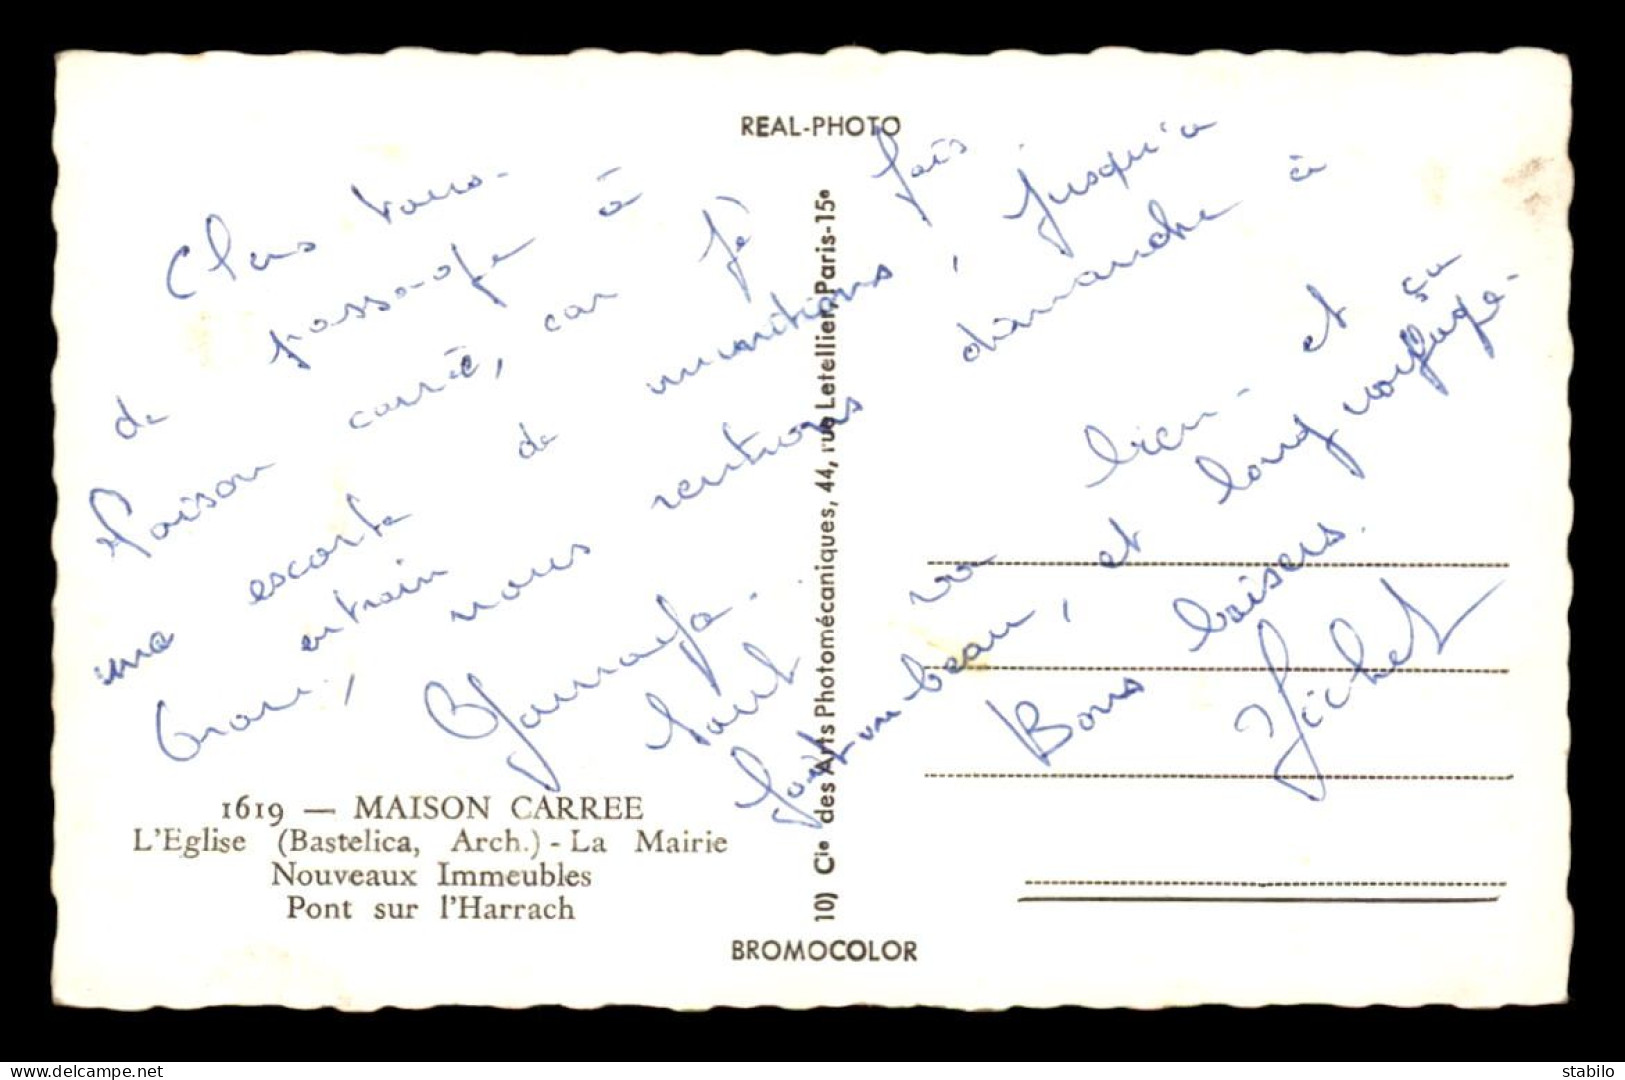 REAL-PHOTO
Chers tous.
de passage à
Maison carrée, car je fais
ma escorte de munitions, jusqu'a
Oran, entrain nous rentrons dimanche à
Tout va bien. et ça
fait un beau, et long voyage.
Bons baisers.
Michel
1619 — MAISON CARREE
L'Eglise (Bastelica, Arch.) - La Mairie
Nouveaux Immeubles
Pont sur l'Harrach
10) Cie des Arts Photomécaniques, 44, rue Letellier, Paris-15e
BROMOCOLOR
stabilo